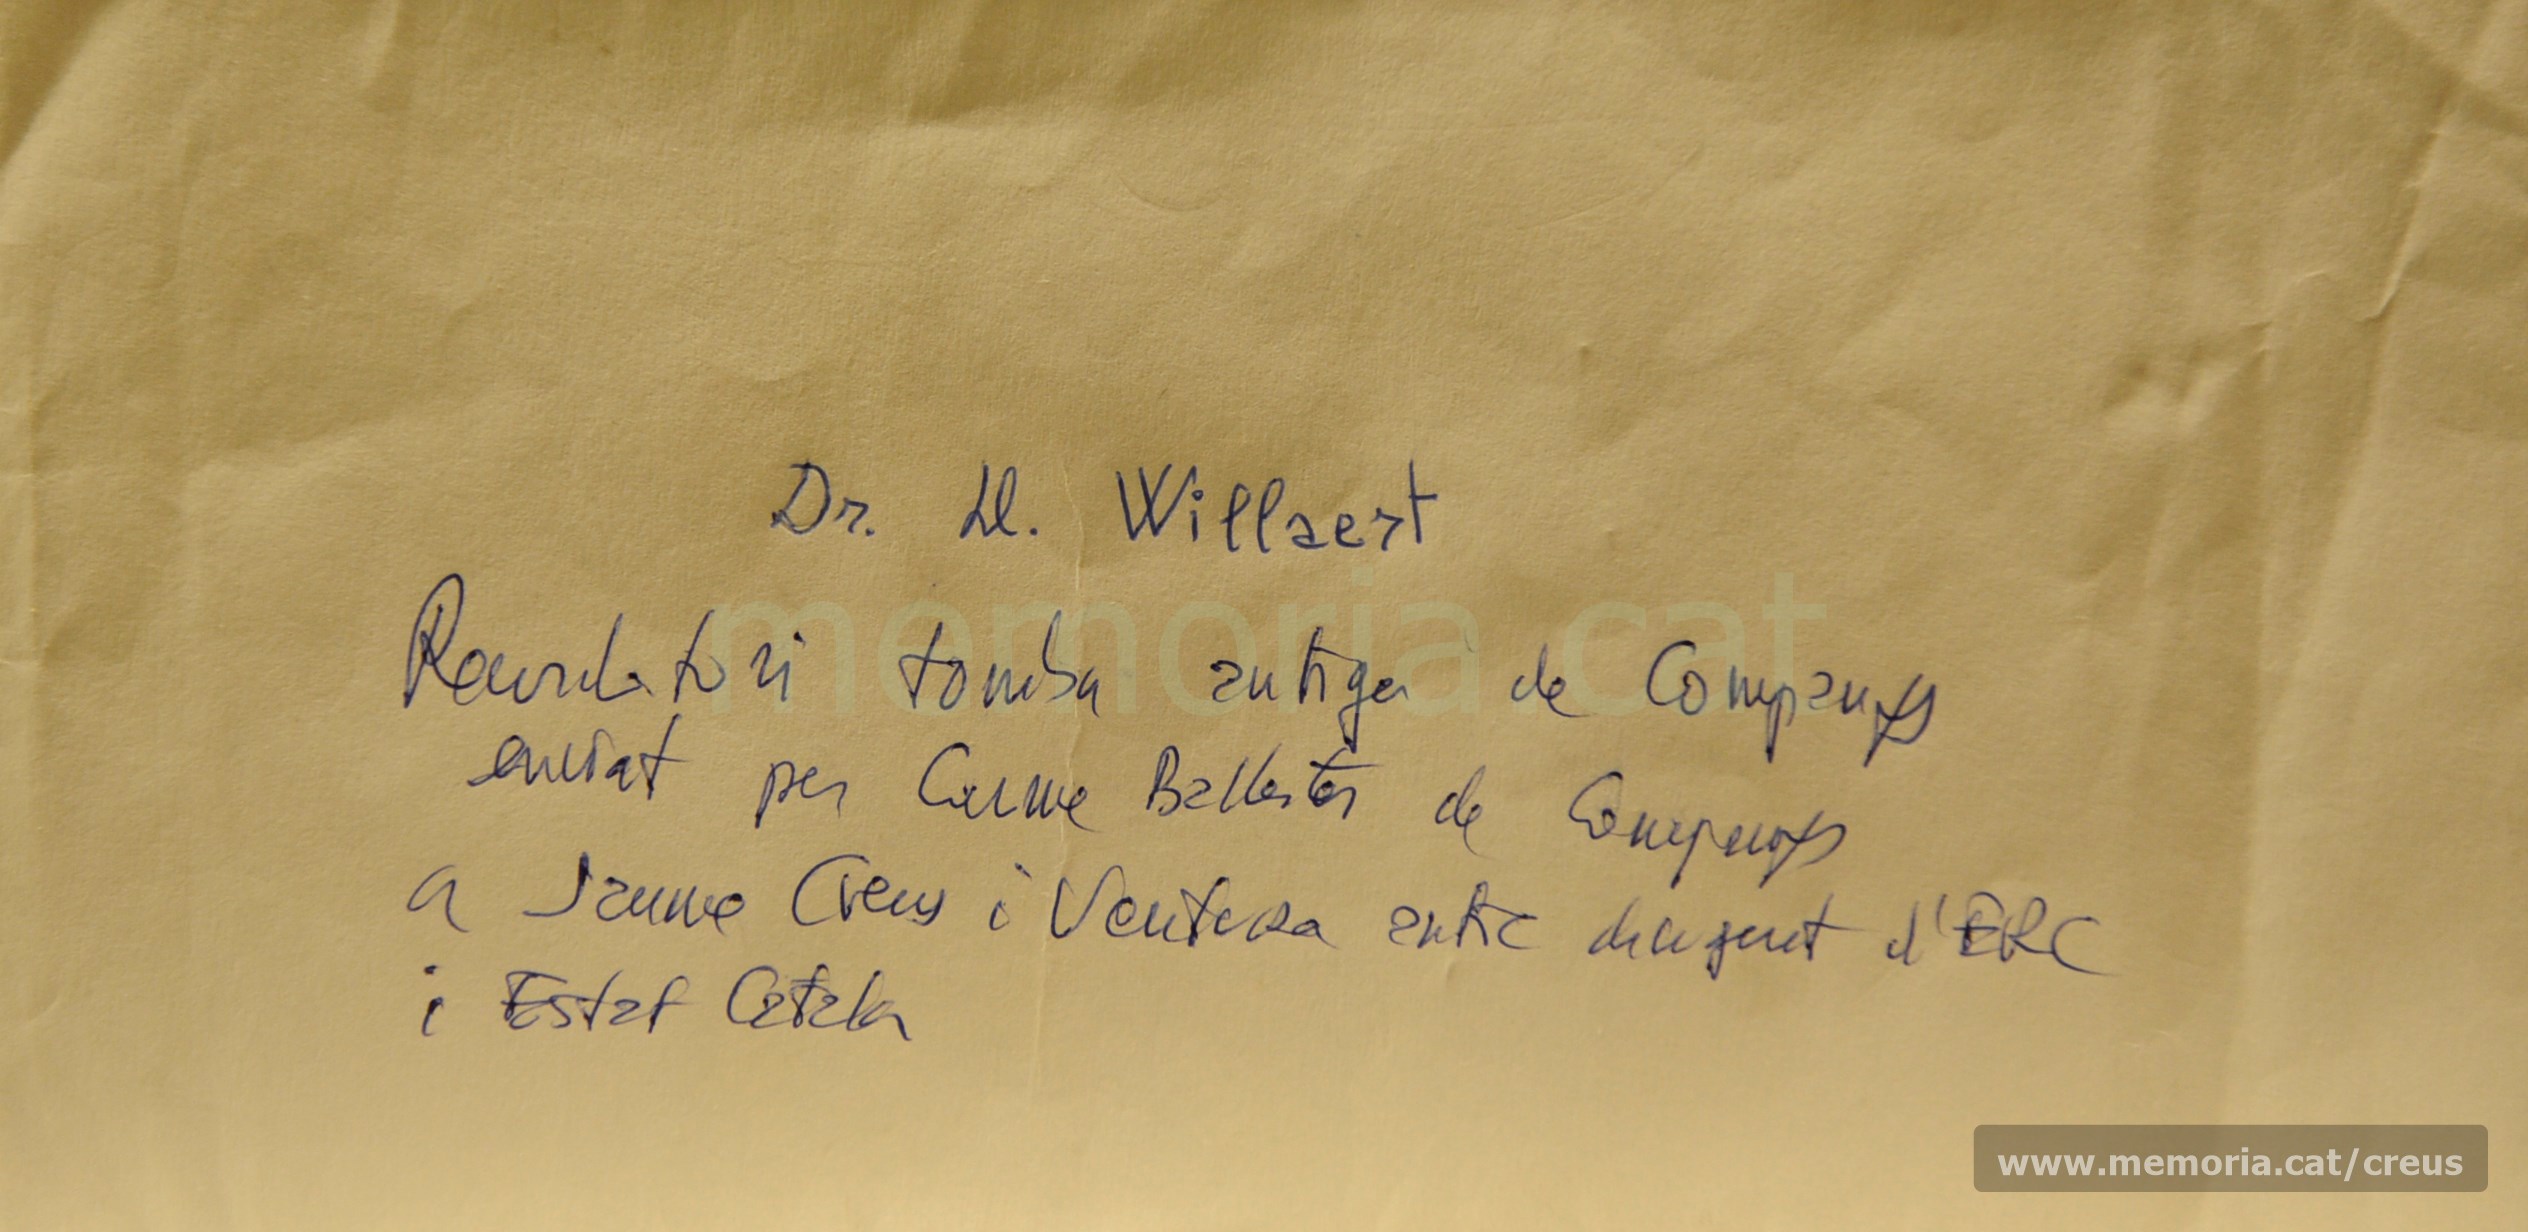 Dr. Ll. Willaert
Recordatori tomba antiga de Companys
enviat per Carme Ballester de Companys
a Jaume Creus i Ventura antic dirigent d'ERC
i Estat Català
memoria.cat
www.memoria.cat/creus